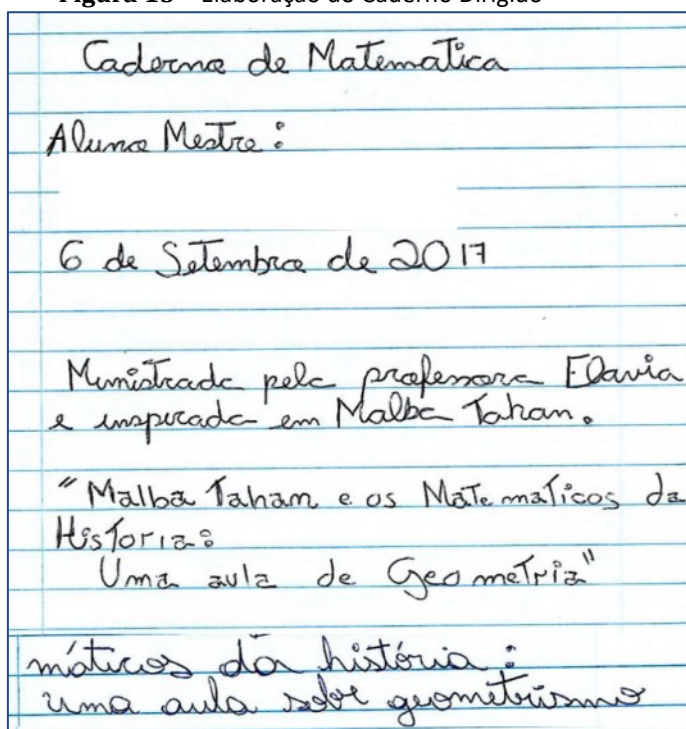 Figura 15 – Elaboração do Caderno Dirigido
Caderno de Matematica
Aluno Mestre:
6 de Setembro de 2017
Ministrado pela professora Flavia
e inspirada em Malba Tahan.
"Malba Taham e os Matematicos da
Historia:
Uma aula de Geometria"
máticos da história:
uma aula sobre geometrismo